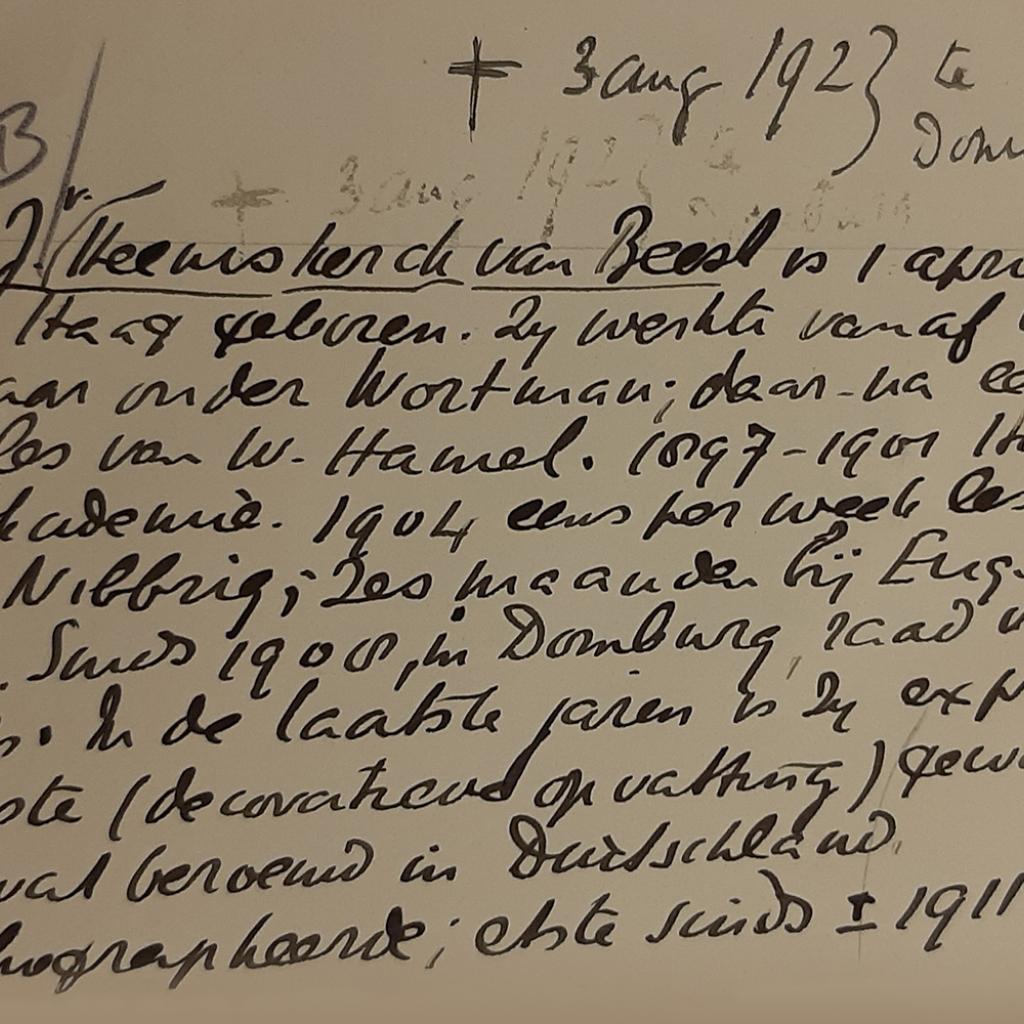 † 3 aug 1923 te
Dom
B
J. v. Heemskerck van Beest is 1 apri
Haag geboren. Zy werkte vanaf
aar onder Wortman; daar-na ee
les van W. Hamel. 1897-1901 H
kademie. 1904 eens per week les
Nibbrig; zes maanden bij Eug.
Sinds 1908, in Domburg, raad
In de laatste jaren is zy exp
ste (decoratieve opvatting) gew
val beroemd in Duitschland.
hographeerde; etste sinds ± 1911